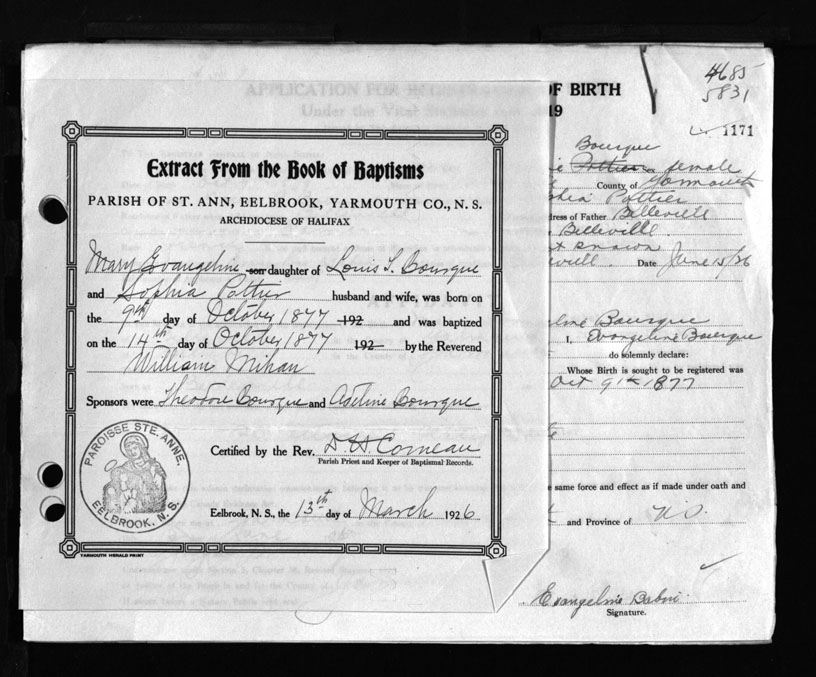 Extract From the Book of Baptisms
PARISH OF ST. ANN, EELBROOK, YARMOUTH CO., N. S.
ARCHDIOCESE OF HALIFAX
Mary Evangeline son daughter of Louis S. Bourque
and Sophia Pottier husband and wife, was born on
the 9th day of October 1877 192 and was baptized
on the 14th day of October 1877 192 by the Reverend
William Mihan
Sponsors were Theodore Bourque and Adeline Bourque
Certified by the Rev. D H Comeau
Parish Priest and Keeper of Baptismal Records.
Eelbrook, N. S., the 13th day of March 1926
PAROISSE STE. ANNE.
EELBROOK, N. S.
YARMOUTH HERALD PRINT
4685
5831
APPLICATION FOR OF BIRTH
Under the Vital 19
1171
Bourque
Pottier sex female
County of Yarmouth
Sophia Pottier
dress of Father Belleville
Belleville
t known
Date June 15/26
Bourque
I, Evangeline Bourque
do solemnly declare:
Whose Birth is sought to be registered was
Oct 9th 1877
same force and effect as if made under oath and
and Province of N.S.
Evangeline
Signature.